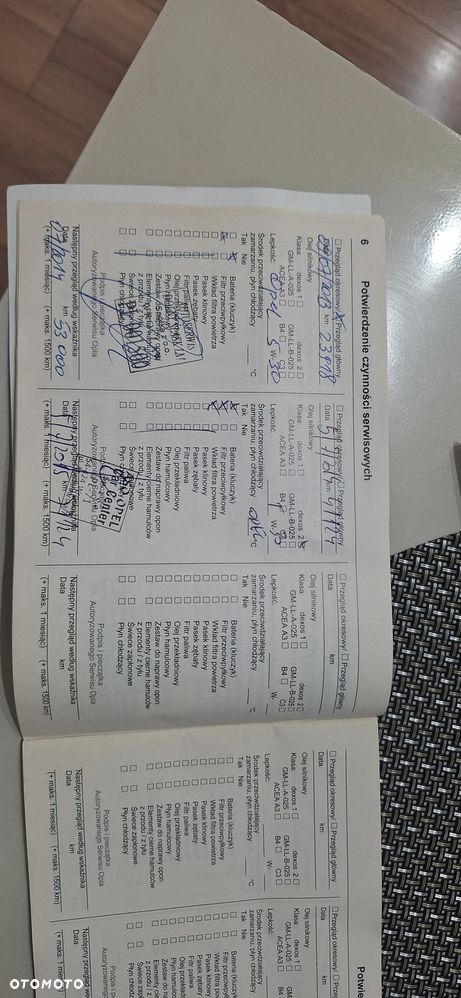 6 Potwierdzenie czynności serwisowych
☐ Przegląd okresowy/ ☒ Przegląd główny
Data km 23918
Olej silnikowy
Klasa: dexos 1 ☐ dexos 2 ☐
GM-LL-A-025 ☐ GM-LL-B-025 ☐
ACEA A3 ☐ B4 ☐ C3 ☐
Lepkość: Opel 5 W- 30
Środek przeciwdziałający
zamarzaniu, płyn chłodzący °C
Tak Nie
Bateria (kluczyk)
Filtr przeciwpyłkowy
Wkład filtra powietrza
Pasek klinowy
Pasek zębaty
Zestaw do naprawy opon
Płyn chłodzący
Podpis i pieczątka
Autoryzowanego Serwisu Opla
Następny przegląd według wskaźnika
Data km 53000
(+ maks. 1 miesiąc) (+ maks. 1500 km)
☐ Przegląd okresowy/ Przegląd główny
Data km
Olej silnikowy
Klasa: dexos 1 ☐ dexos 2 ☒
GM-LL-A-025 ☐ GM-LL-B-025 ☐
ACEA A3 ☐ B4 C3 ☐
Lepkość: W-
Środek przeciwdziałający
zamarzaniu, płyn chłodzący °C
Tak Nie
Bateria (kluczyk)
Filtr przeciwpyłkowy
Wkład filtra powietrza
Pasek klinowy
Pasek zębaty
Filtr paliwa
Olej przekładniowy
Płyn hamulcowy
Zestaw do naprawy opon
Elementy cierne hamulców
z przodu / z tyłu
Świece zapłonowe
Płyn chłodzący
OPEL
Podpis
Autoryzowanego Serwisu Opla
Następny przegląd według wskaźnika
Data km
(+ maks. 1 miesiąc) (+ maks. 1500 km)
☐ Przegląd okresowy/ ☐ Przegląd główny
Data km
Olej silnikowy
Klasa: dexos 1 ☐ dexos 2 ☐
GM-LL-A-025 ☐ GM-LL-B-025 ☐
ACEA A3 ☐ B4 ☐ C3 ☐
Lepkość: W-
Środek przeciwdziałający
zamarzaniu, płyn chłodzący °C
Tak Nie
☐ ☐ Bateria (kluczyk)
☐ ☐ Filtr przeciwpyłkowy
☐ ☐ Wkład filtra powietrza
☐ ☐ Pasek klinowy
☐ ☐ Pasek zębaty
☐ ☐ Filtr paliwa
☐ ☐ Olej przekładniowy
☐ ☐ Płyn hamulcowy
☐ ☐ Zestaw do naprawy opon
☐ ☐ Elementy cierne hamulców
z przodu / z tyłu
☐ ☐ Świece zapłonowe
☐ ☐ Płyn chłodzący
Podpis i pieczątka
Autoryzowanego Serwisu Opla
Następny przegląd według wskaźnika
Data km
(+ maks. 1 miesiąc) (+ maks. 1500 km)
☐ Przegląd okresowy/ ☐ Przegląd główny
Data km
Olej silnikowy
Klasa: dexos 1 ☐ dexos 2 ☐
GM-LL-A-025 ☐ GM-LL-B-025 ☐
ACEA A3 ☐ B4 ☐ C3 ☐
Lepkość: W-
Środek przeciwdziałający
zamarzaniu, płyn chłodzący °C
Tak Nie
☐ ☐ Bateria (kluczyk)
☐ ☐ Filtr przeciwpyłkowy
☐ ☐ Wkład filtra powietrza
☐ ☐ Pasek klinowy
☐ ☐ Pasek zębaty
☐ ☐ Filtr paliwa
☐ ☐ Olej przekładniowy
☐ ☐ Płyn hamulcowy
☐ ☐ Zestaw do naprawy opon
☐ ☐ Elementy cierne hamulców
z przodu / z tyłu
☐ ☐ Świece zapłonowe
☐ ☐ Płyn chłodzący
Podpis i pieczątka
Autoryzowanego Serwisu Opla
Następny przegląd według wskaźnika
Data km
(+ maks. 1 miesiąc) (+ maks. 1500 km)
Potwie
☐ Przegląd okresowy/ ☐ Prze
Data
Olej silnikowy
Klasa: dexos 1
GM-LL-A-025
ACEA A3
Lepkość:
Środek przeciwdziałający
zamarzaniu, płyn chłod
Tak Nie
Bateria (klucz
Filtr przeciw
Wkład filtra
Pasek klin
Pasek zęb
Filtr paliw
Olej przek
Płyn ham
Zestaw do na
Elementy c
z przodu / z
Świece za
Płyn chłod
Podpis i
Autoryzowaneg
Następny przegląd we
Data
(+ maks. 1 mie
OTOMOTO